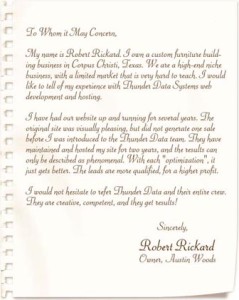 To Whom it May Concern,
My name is Robert Rickard. I own a custom furniture build-
ing business in Corpus Christi, Texas. We are a high-end niche
business, with a limited market that is very hard to reach. I would
like to tell of my experience with Thunder Data Systems web
development and hosting.
I have had our website up and running for several years. The
original site was visually pleasing, but did not generate one sale
before I was introduced to the Thunder Data team. They have
maintained and hosted my site for two years, and the results can
only be described as phenomenal. With each "optimization", it
just gets better. The leads are more qualified, for a higher profit.
I would not hesitate to refer Thunder Data and their entire crew.
They are creative, competent, and they get results!
Sincerely,
Robert Rickard
Owner, Austin Woods